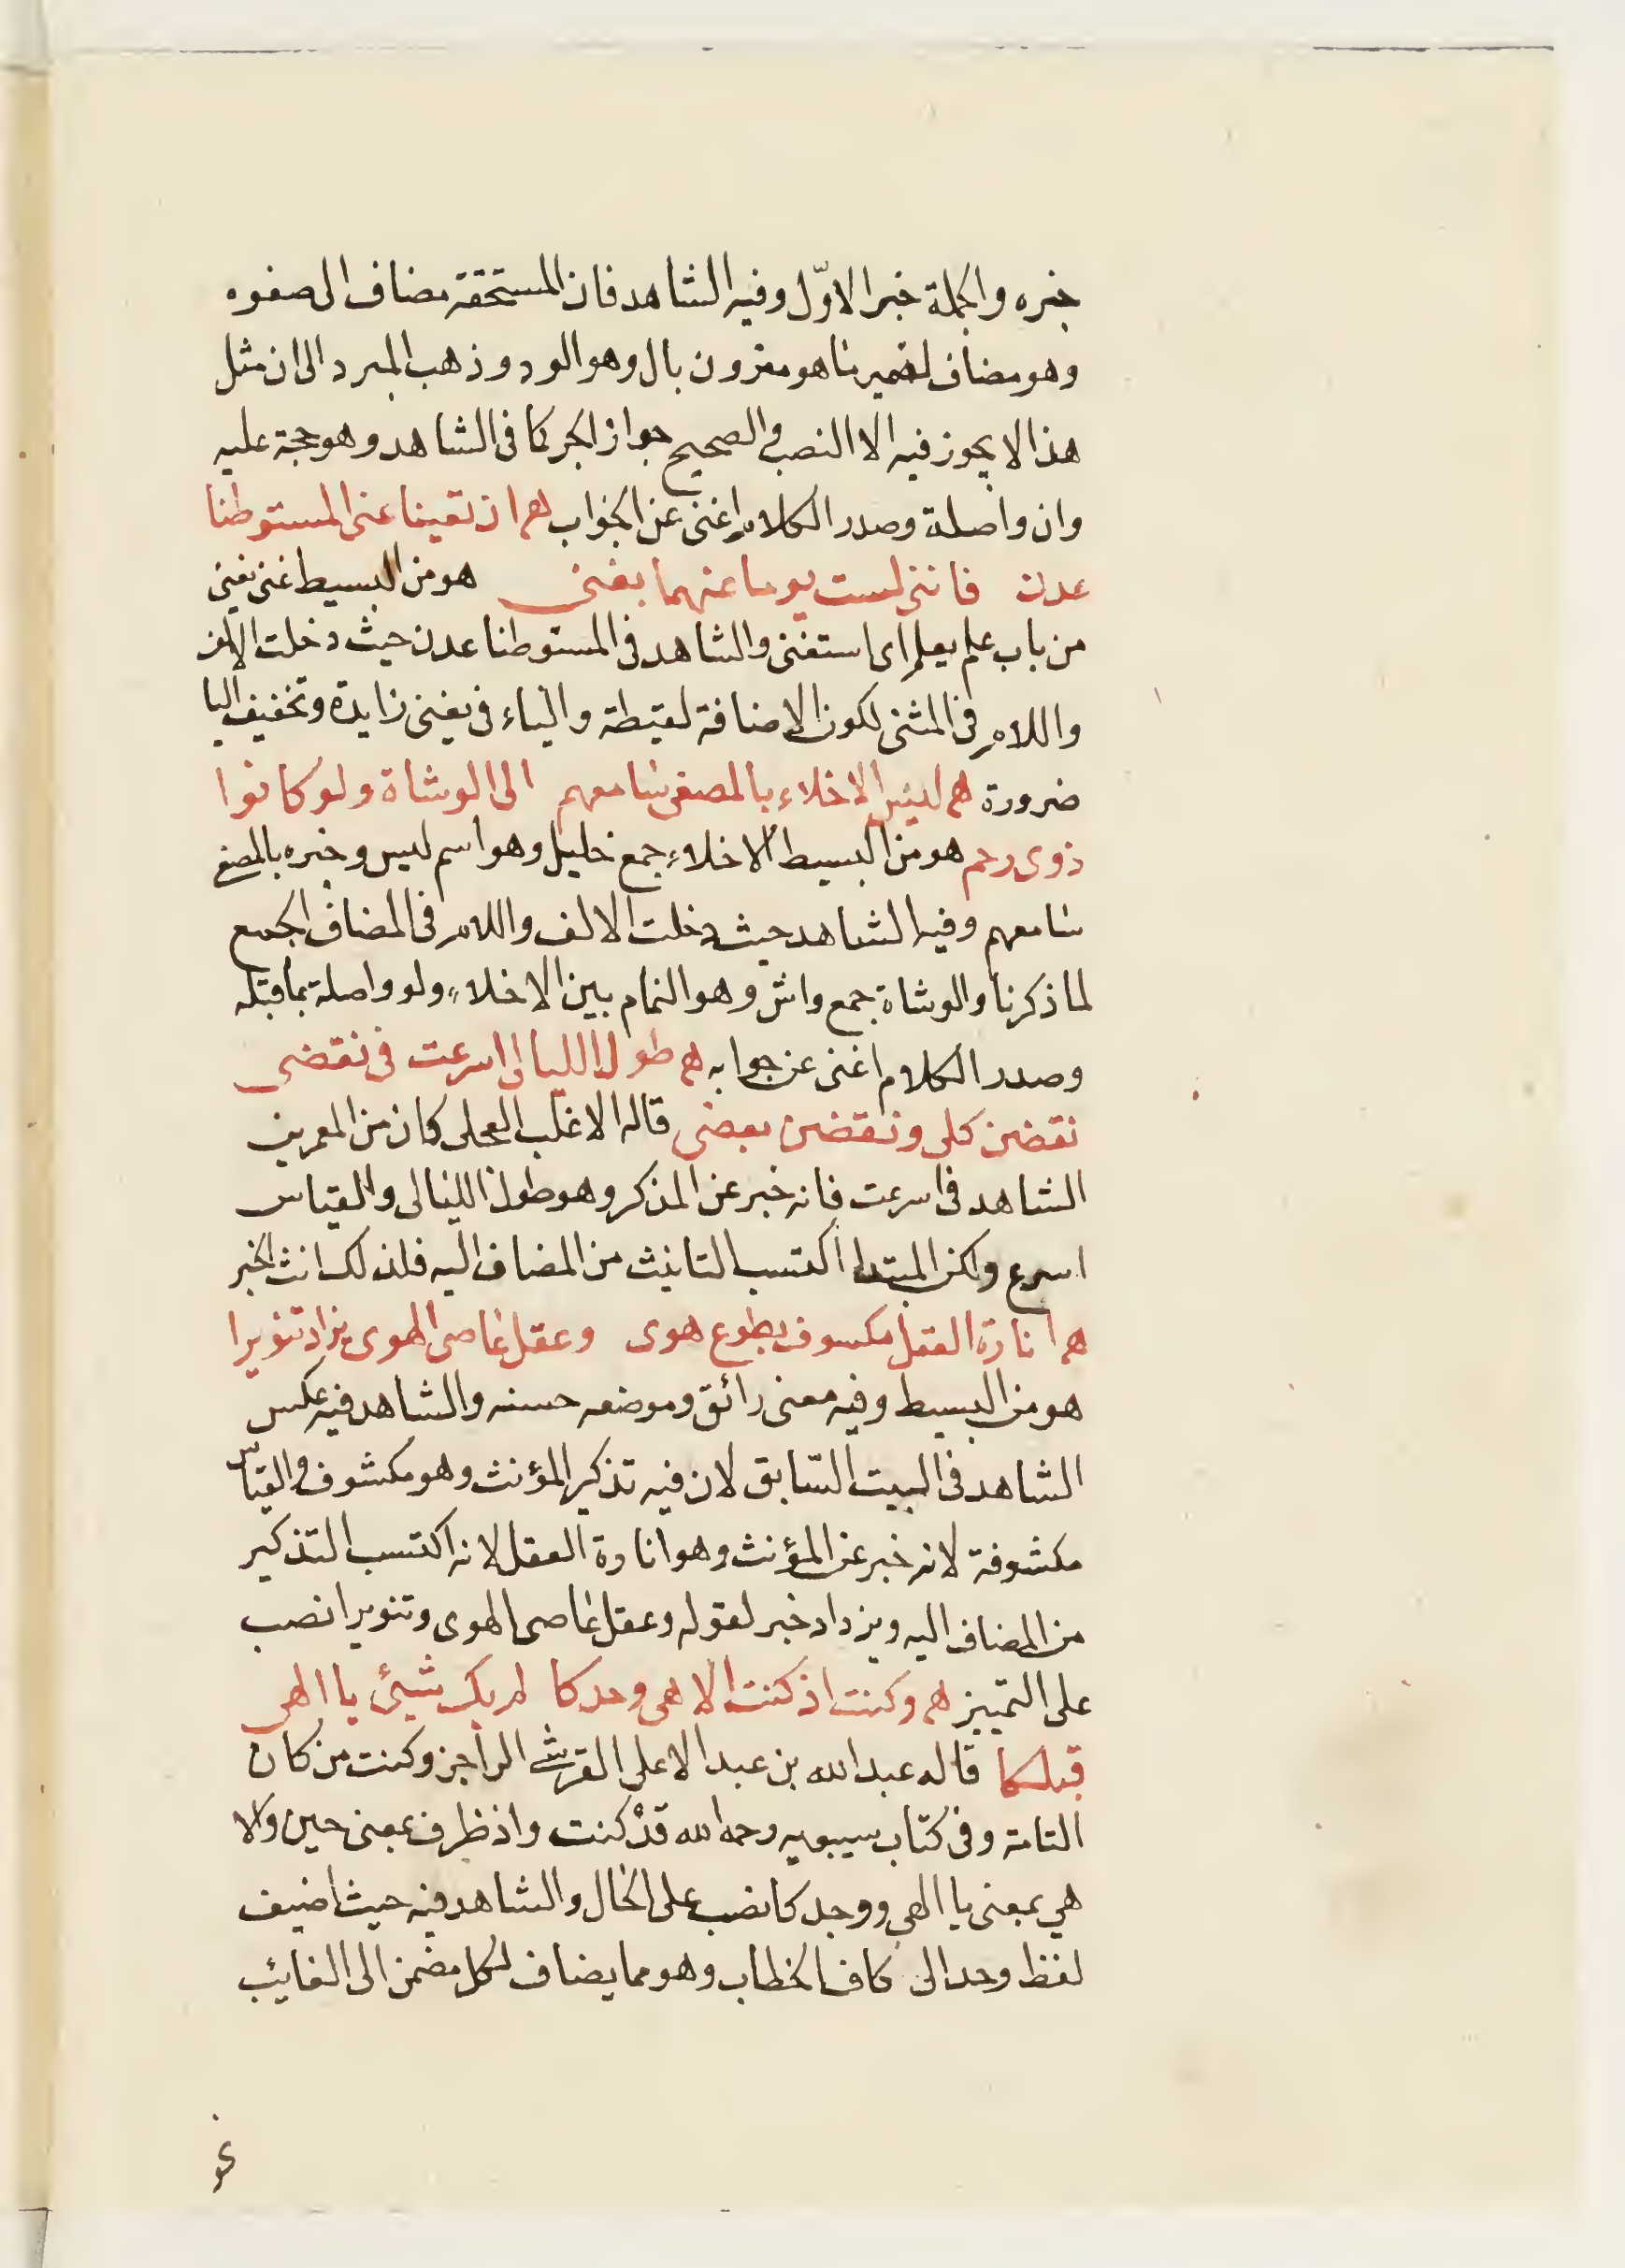 خبره والجملة خبر الاوّل وفيه الشاهد فان المستحقة مضاف الى صفوه
وهو مضاف لضمير ما هو مقرون بال وهو الود وذهب المبرد الى ان مثل
هذا لا يجوز فيه الا النصب والصحيح جواز الجر كما فى الشاهد وهو حجة عليه
وان واصلة وصدر الكلام اغنى عن الجواب هم ان تغنيا عنى المستوطنا
عدن فاننى لست يوما عنهما بغنى هو من البسيط غنى يغنى
من باب علم يعلم اى استغنى والشاهد فى المستوطنا عدن حيث دخلت الالف
واللام فى المثنى لكون الاضافة لفظية والباء فى بغنى زايدة وتخفيف اليا
ضرورة هم ليس الاخلاء بالمصغى مسامعهم الى الوشاة ولو كانوا
ذوى رحم هو من البسيط الاخلاء جمع خليل وهو اسم ليس وخبره بالمصغى
مسامعهم وفيه الشاهد حيث دخلت الالف واللام فى المضاف الجمع
لما ذكرنا والوشاة جمع واش وهو النمام بين الاخلاء ولو واصلة بما قبله
وصدر الكلام اغنى عن جوابه هم طول الليالى اسرعت فى نقضى
نقضن كلى ونقضن بعضى قاله الاغلب العجلى كان من المعمرين
الشاهد فى اسرعت فانه خبر عن المذكر وهو طول الليالى والقياس
اسرع ولكن المبتدا اكتسب التانيث من المضاف اليه فلذلك انث الخبر
هم انارة العقل مكسوف بطوع هوى وعقل عاصى الهوى يزداد تنويرا
هو من البسيط وفيه معنى رائق وموضعه حسنه والشاهد فيه عكس
الشاهد فى البيت السّابق لان فيه تذكير المؤنث وهو مكشوف والقياس
مكشوفة لانه خبر عن المؤنث وهو انارة العقل لانه اكتسب التذكير
من المضاف اليه ويزداد خبر لقوله وعقل عاصى الهوى وتنويرا نصب
على التمييز هم وكنت اذ كنت الاهى وحدكا لم يك شيئ يا الهى
قبلكا قاله عبد الله بن عبد الاعلى القرشى الراجز وكنت من كان
التامة وفى كتاب سيبويه رحمه الله قدْ كنت واذ ظرف بمعنى حين والا
هي بمعنى يا الهي ووحدكا نصب على الحال والشاهد فيه حيث اضيف
لفظ وحد الى كاف الخطاب وهو مما يضاف لكل مضمر الى الغايب